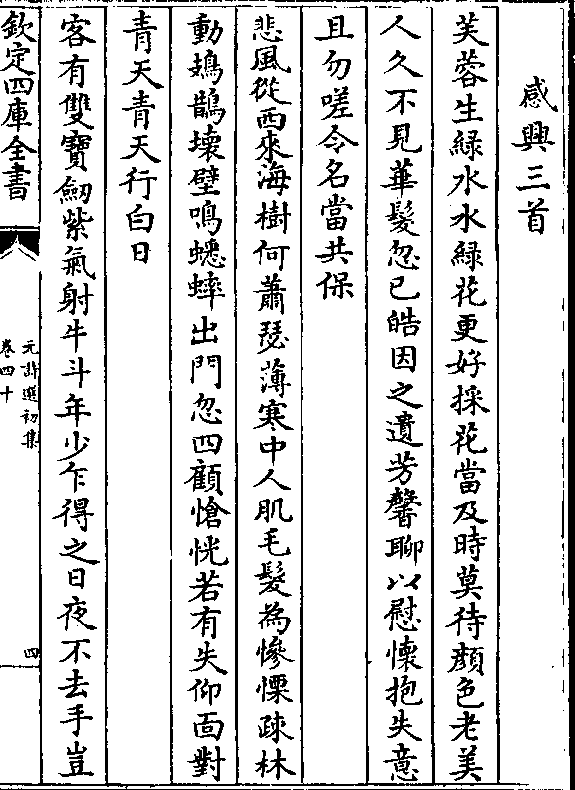 感興三首
芙蓉生綠水水綠花更好採花當及時莫待顏色老美
人久不見華髮忽已皓因之遺芳馨聊以慰懷抱失意
且勿嗟令名當共保
悲風從西來海樹何蕭瑟薄寒中人肌毛髮為慘慄疎林
動鳷鵲壞壁鳴蟋蟀出門忽四顧愴恍若有失仰面對
青天青天行白日
客有雙寶劒紫氣射牛斗年少乍得之日夜不去手豈
欽定四庫全書
元詩選初集
卷四十
四